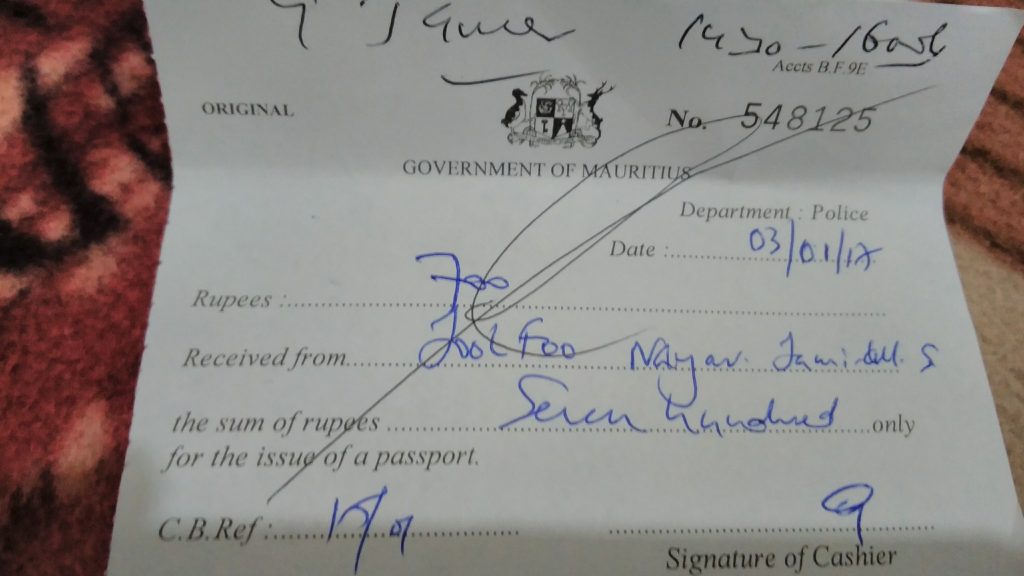 1430 - 16
Accts B.F.9E
ORIGINAL
No. 548125
GOVERNMENT OF MAURITIUS
Department : Police
Date : 03/01/17
Rupees : 700
Received from Foo
the sum of rupees Seven hundred only
for the issue of a passport.
C.B.Ref :
Signature of Cashier